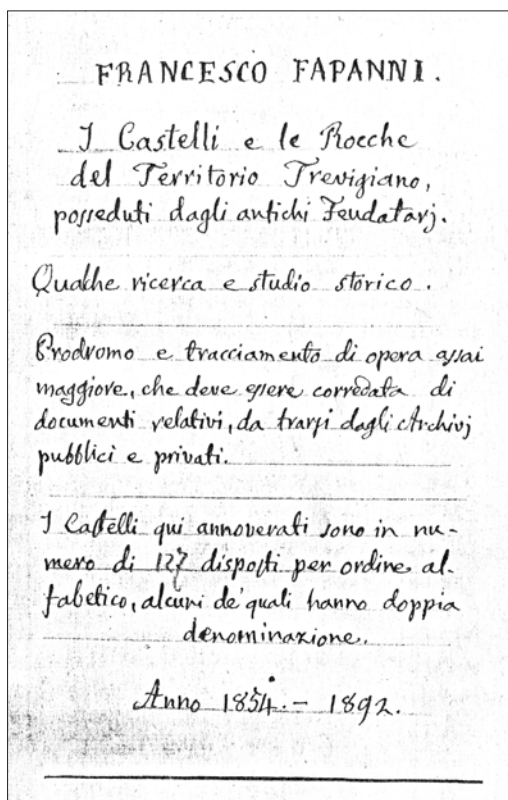 FRANCESCO FAPANNI.
I Castelli e le Rocche
del Territorio Trevigiano,
posseduti dagli antichi Feudatarj.
Qualche ricerca e studio storico.
Prodromo e tracciamento di opera assai
maggiore, che deve essere corredata di
documenti relativi, da trarsi dagli Archivj
pubblici e privati.
I Castelli qui annoverati sono in nu-
mero di 127 disposti per ordine al-
fabetico, alcuni de' quali hanno doppia
denominazione.
Anno 1854. - 1892.